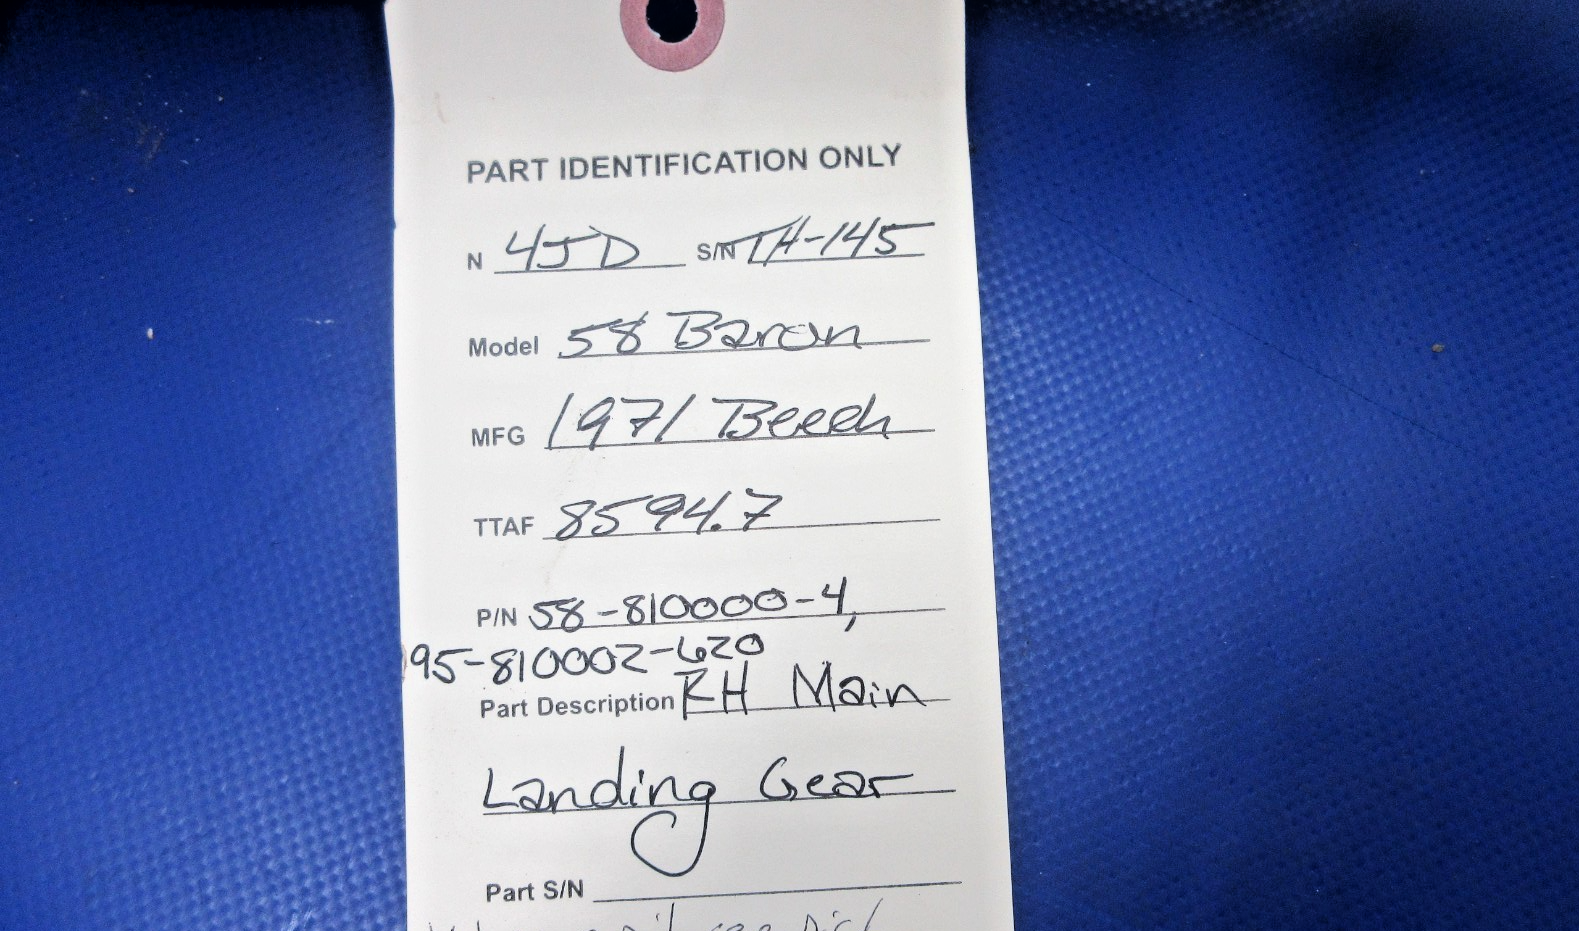 PART IDENTIFICATION ONLY
N 4JD S/N TH-145
Model 58 Baron
MFG 1971 Beech
TTAF 8594.7
P/N 58-810000-4,
95-810002-620
Part Description RH Main
Landing Gear
Part S/N